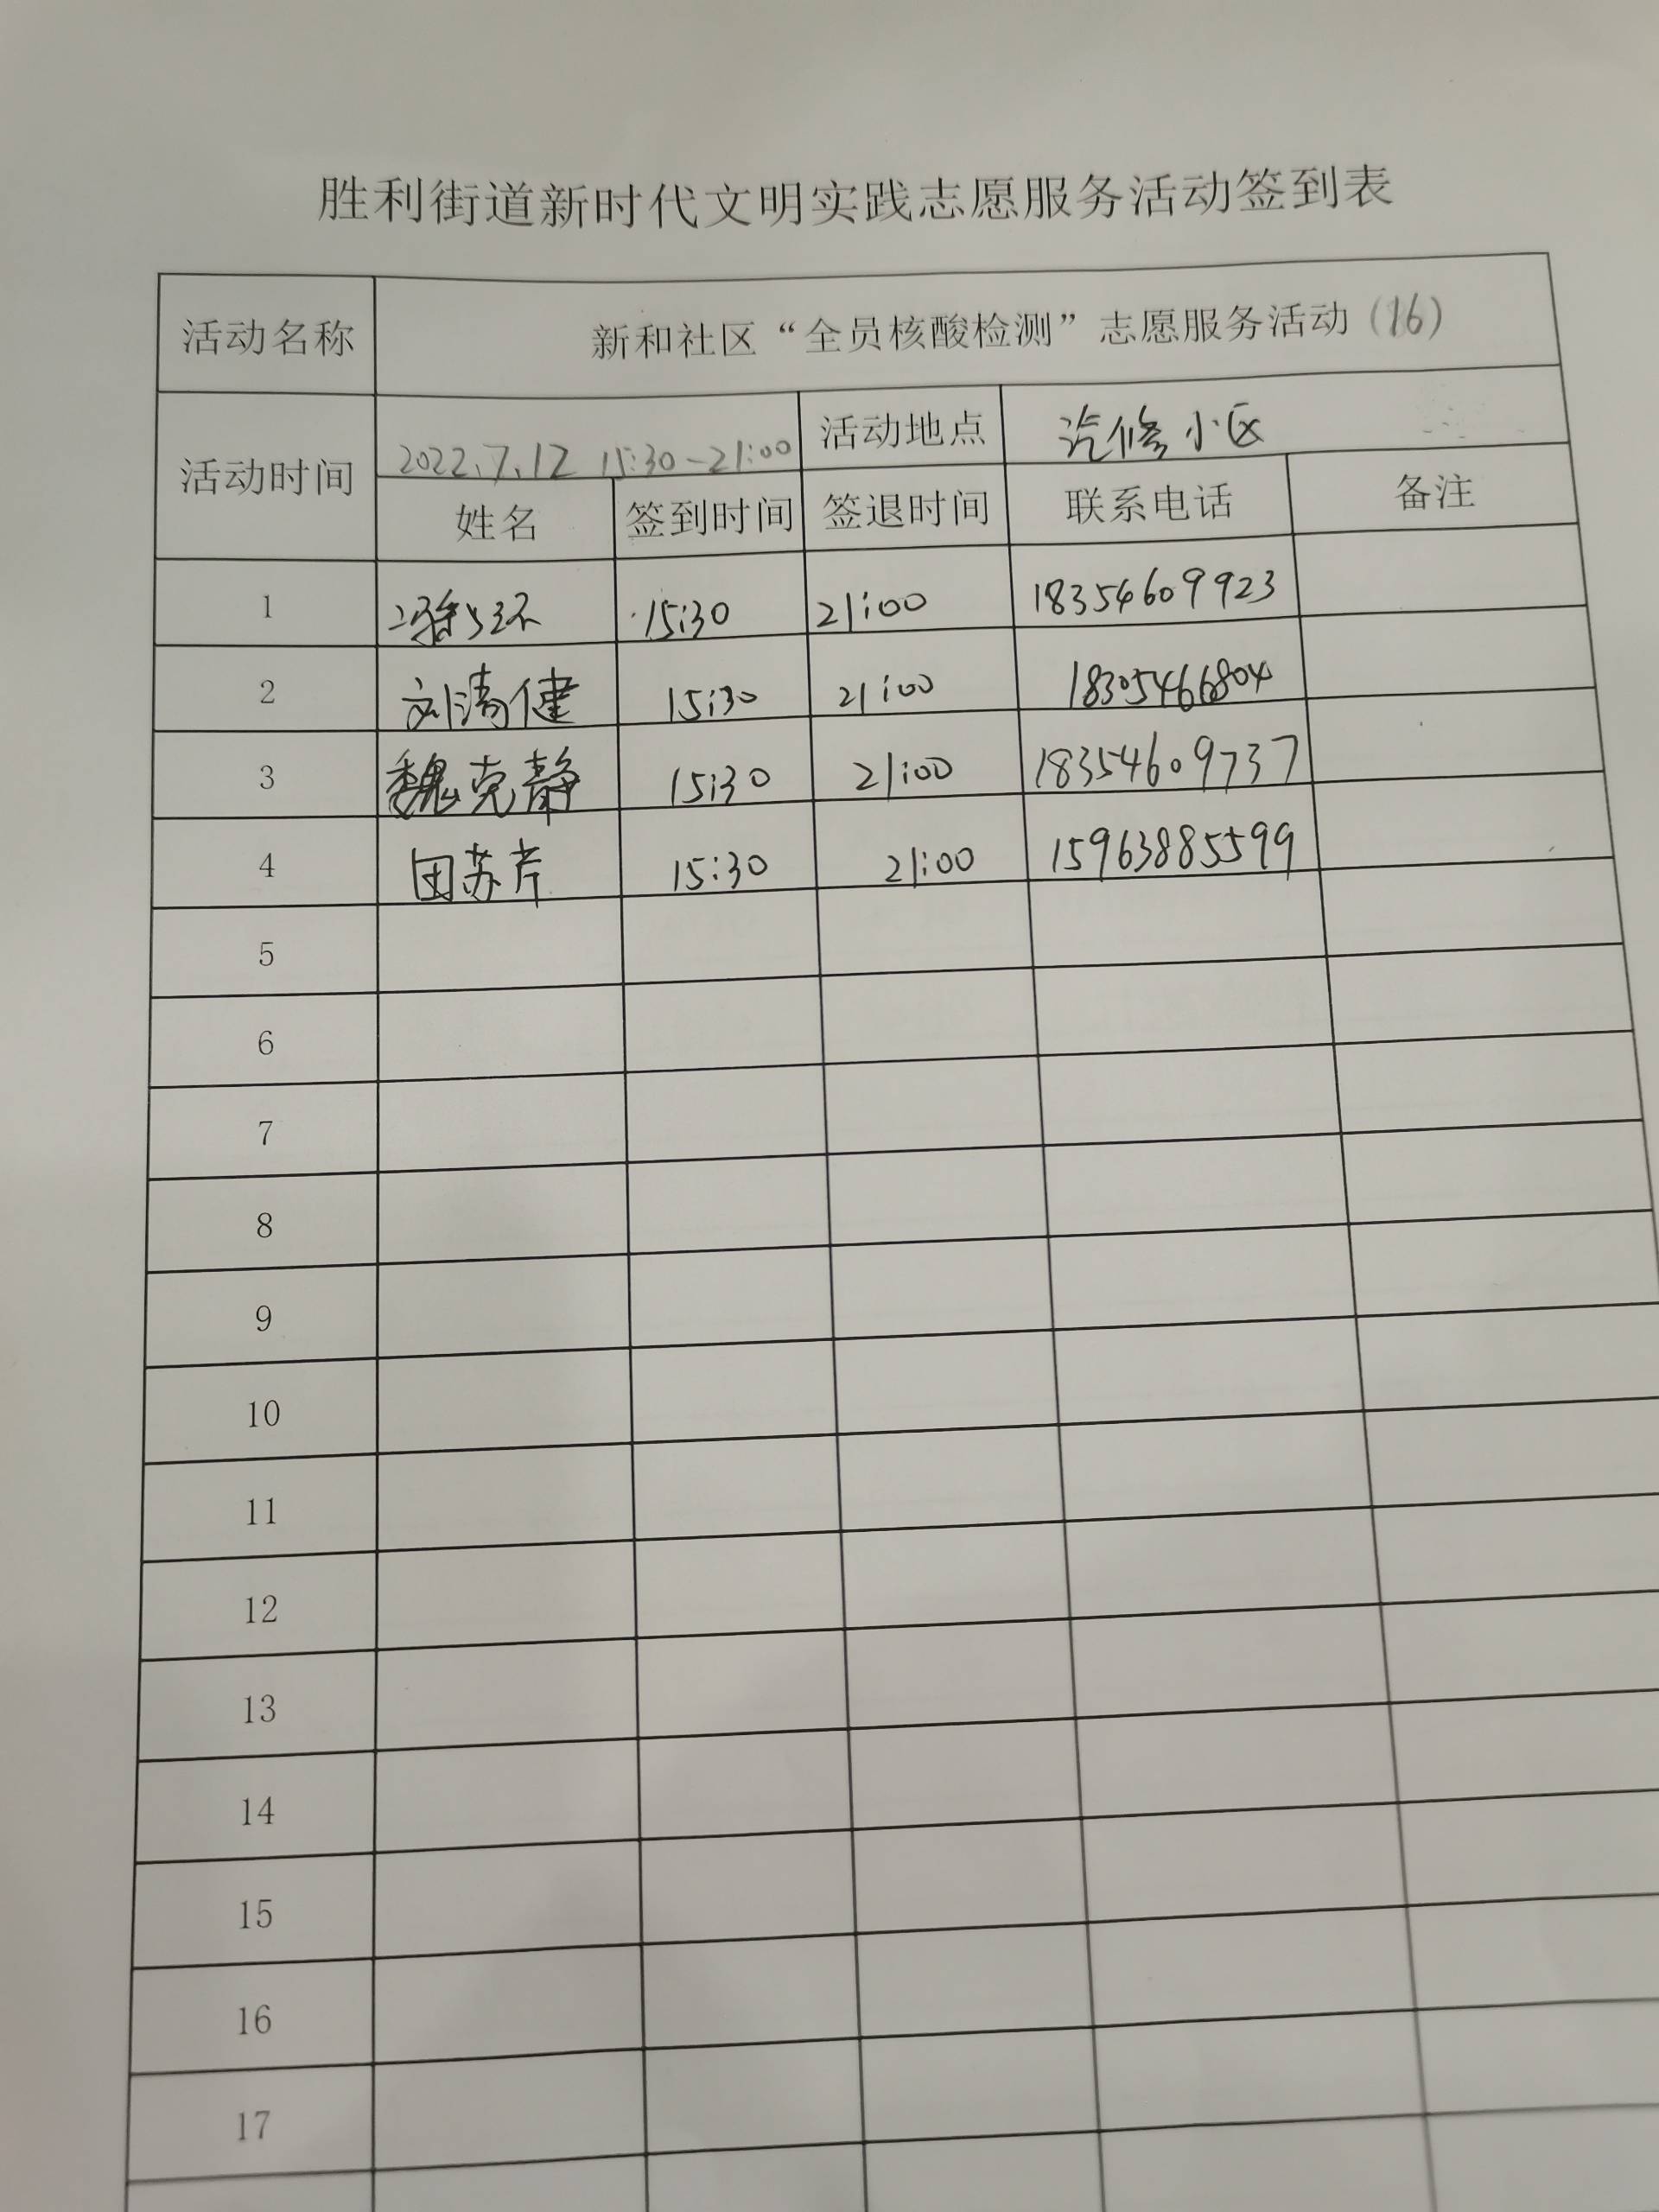 胜利街道新时代文明实践志愿服务活动签到表
活动名称 新和社区“全员核酸检测”志愿服务活动(16)
活动时间 2022.7.12 15:30-21:00 活动地点 汽修小区
姓名 签到时间 签退时间 联系电话 备注
1 15:30 21:00 18354609923
2 刘清健 15:30 21:00 18305466804
3 魏克静 15:30 21:00 18354609737
4 田苏芹 15:30 21:00 15963885599
5
6
7
8
9
10
11
12
13
14
15
16
17